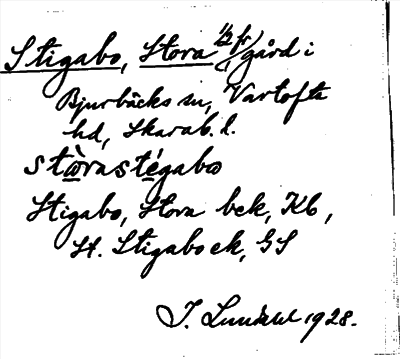 Stigabo, Stora 1/2 fr gård i
Bjurbäcks sn, Vartofta
hd, Skarab. l.
stὼrastégabω
Stigabo, Stora bek, Kb,
St. Stigabo ek, GS
I. Lundahl 1928.